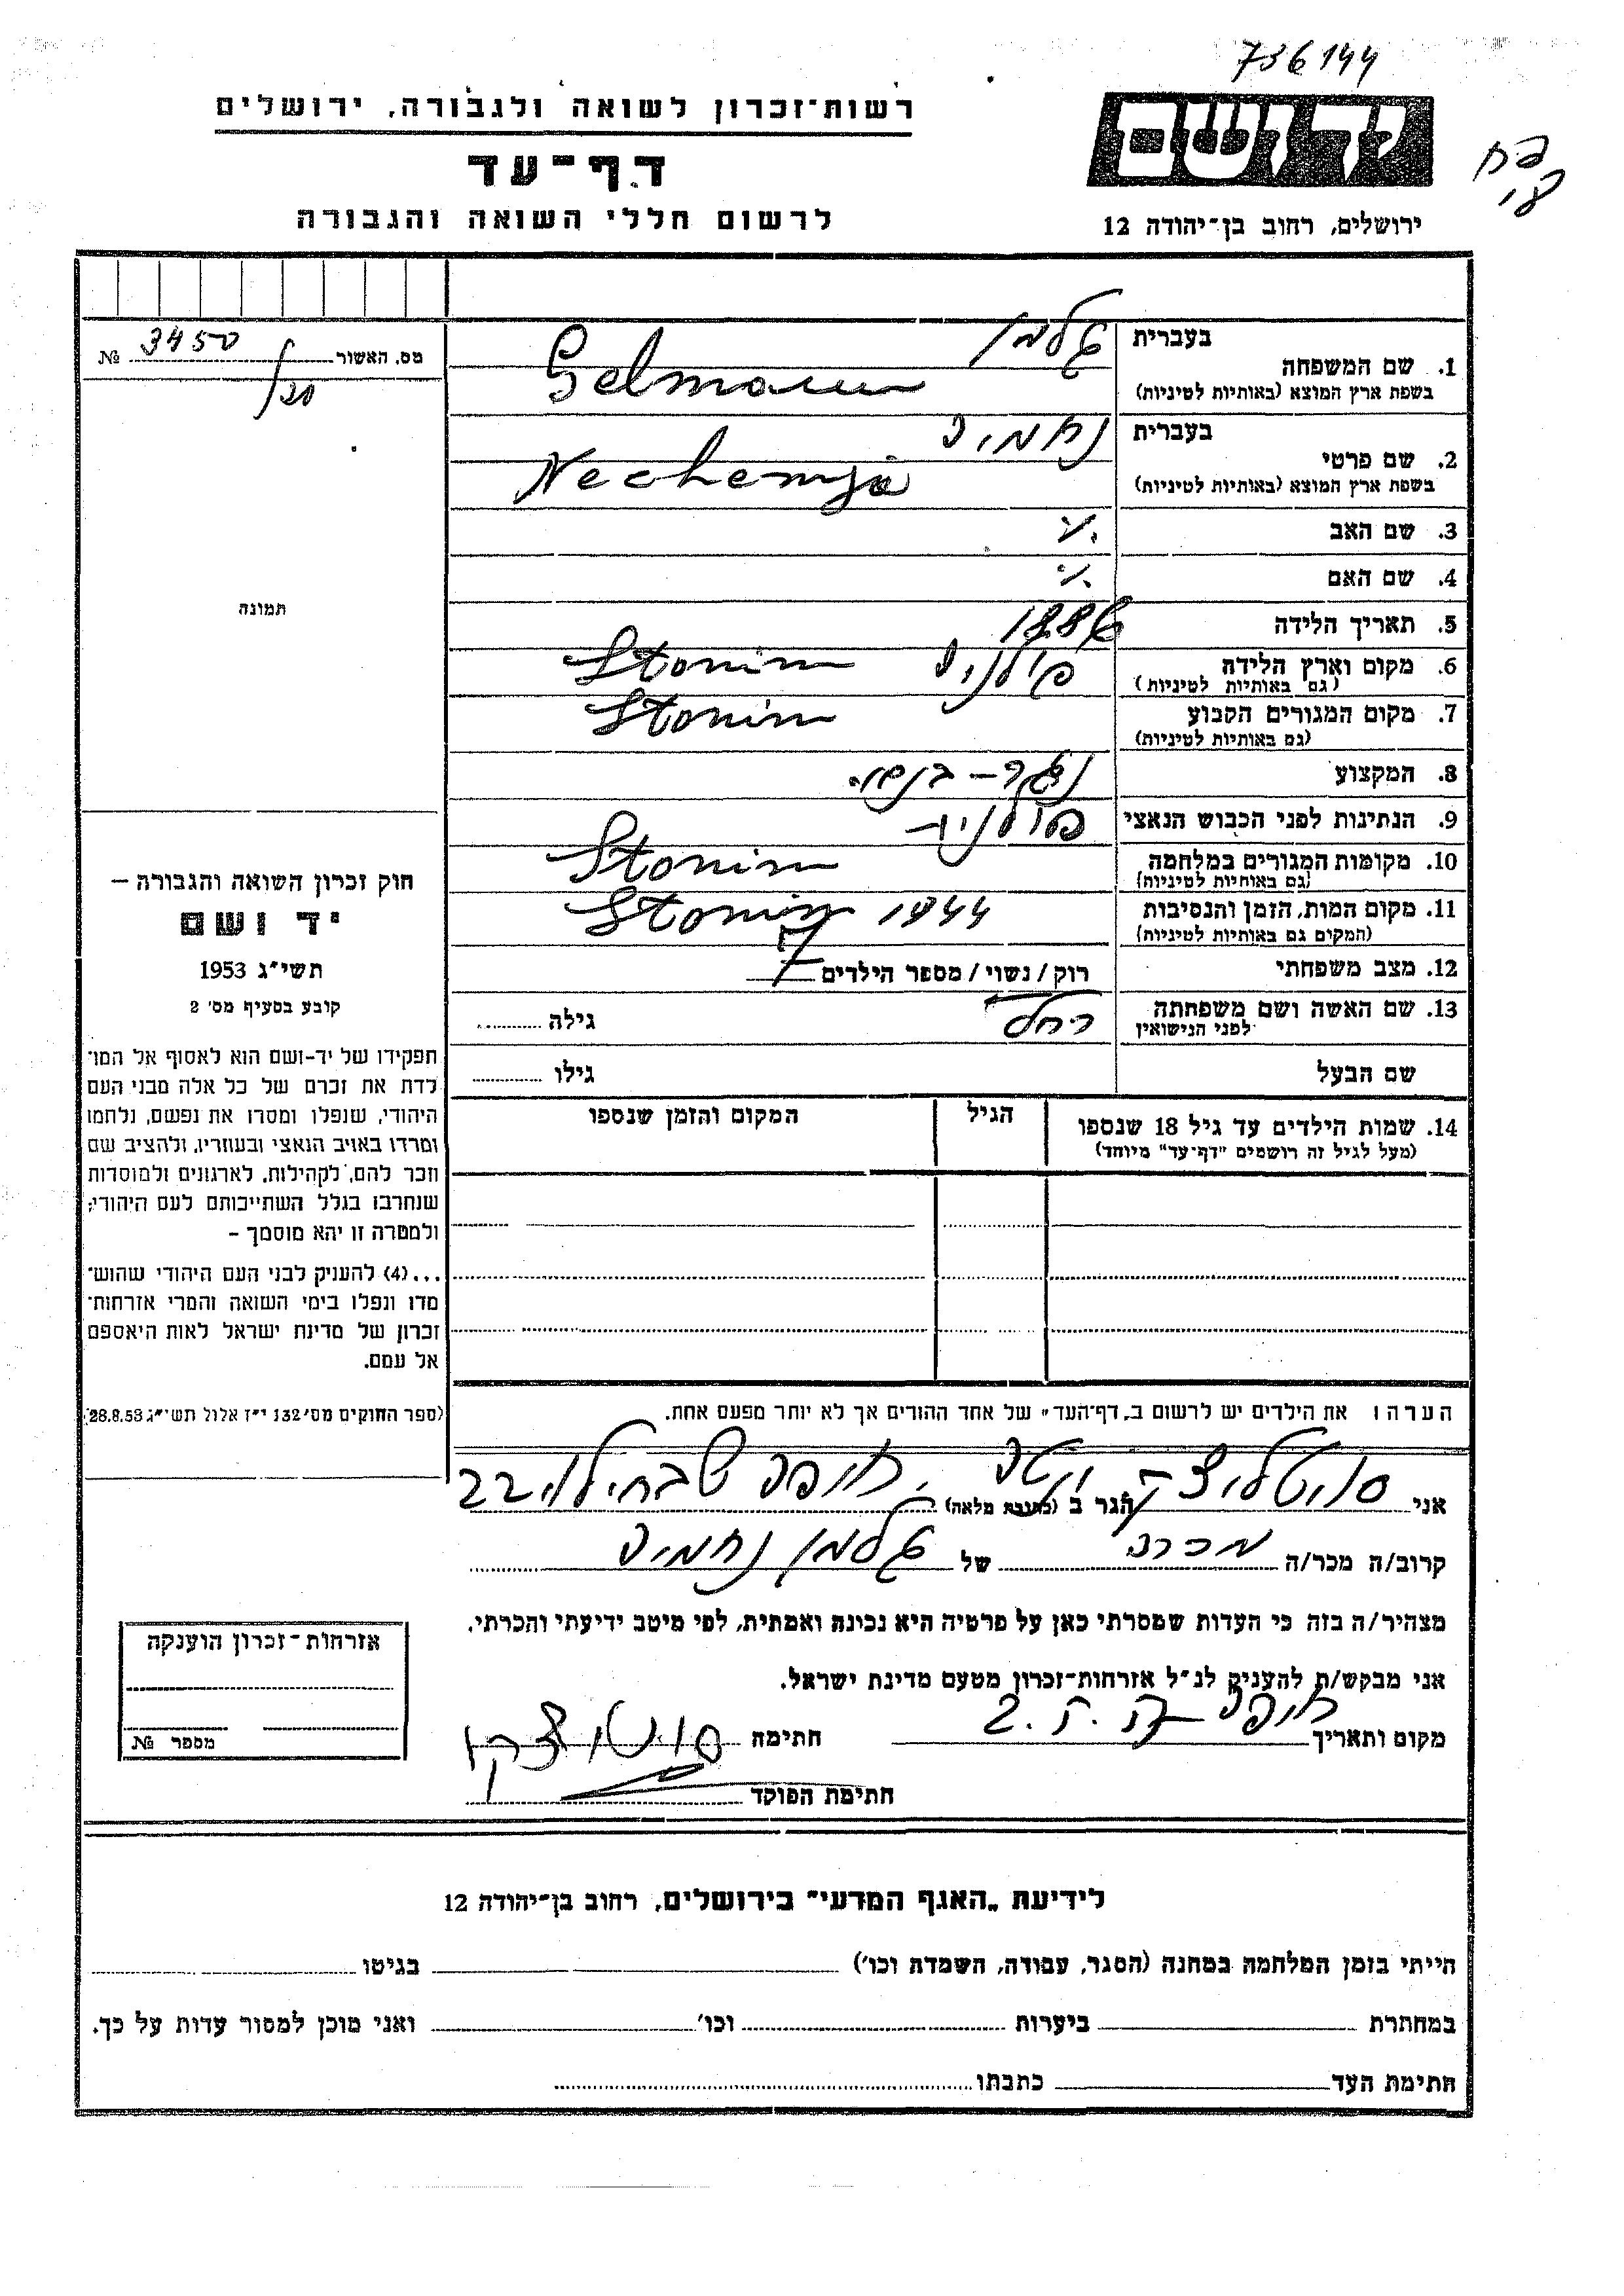 736144
רשות־זכרון לשואה ולגבורה, ירושלים
יד ושם
דף־עד
לרשום חללי השואה והגבורה
ירושלים, רחוב בן־יהודה 12
בעברית גלמן
1. שם המשפחה
בשפת ארץ המוצא (באותיות לטיניות) Gelmann
מס. האשור 3450 №
/30
בעברית נחמיה
2. שם פרטי
בשפת ארץ המוצא (באותיות לטיניות) Nechemja
3. שם האב
4. שם האם
5. תאריך הלידה 1886
6. מקום וארץ הלידה פולניה Slonim
(גם באותיות לטיניות)
7. מקום המגורים הקבוע Slonim
(גם באותיות לטיניות)
8. המקצוע נגר –
9. הנתינות לפני הכבוש הנאצי פולנית
10. מקומות המגורים במלחמה Slonim
(גם באותיות לטיניות)
11. מקום המות, הזמן והנסיבות Slonim 1944
(המקום גם באותיות לטיניות)
12. מצב משפחתי רוק / נשוי / מספר הילדים 7
13. שם האשה ושם משפחתה רחל גילה
לפני הנישואין
שם הבעל גילו
14. שמות הילדים עד גיל 18 שנספו הגיל המקום והזמן שנספו
(מעל לגיל זה רושמים "דף־עד" מיוחד)
תמונה
חוק זכרון השואה והגבורה –
יד ושם
תשי"ג 1953
קובע בסעיף מס' 2
תפקידו של יד־ושם הוא לאסוף אל המו־
לדת את זכרם של כל אלה מבני העם
היהודי, שנפלו ומסרו את נפשם, נלחמו
ומרדו באויב הנאצי ובעוזריו, ולהציב שם
וזכר להם, לקהילות, לארגונים ולמוסדות
שנחרבו בגלל השתייכותם לעם היהודי;
ולמטרה זו יהא מוסמך –
...(4) להעניק לבני העם היהודי שהוש־
מדו ונפלו בימי השואה והמרי אזרחות־
זכרון של מדינת ישראל לאות היאספם
אל עמם.
(ספר החוקים מס' 132 י"ז אלול תשי"ג 28.8.53)
הערה: את הילדים יש לרשום ב„דף־העד" של אחד ההורים אך לא יותר מפעם אחת.
אני הגר ב (כתובת מלאה) חיפה 22
קרוב/ה מכר/ה מכרה של גלמן נחמיה
מצהיר/ה בזה כי העדות שמסרתי כאן על פרטיה היא נכונה ואמתית, לפי מיטב ידיעתי והכרתי.
אני מבקש/ת להעניק לנ"ל אזרחות־זכרון מטעם מדינת ישראל.
מקום ותאריך חיפה חתימה
חתימת הפוקד
אזרחות־זכרון הוענקה
מספר №
לידיעת „האגף המדעי" בירושלים, רחוב בן־יהודה 12
הייתי בזמן המלחמה במחנה (הסגר, עבודה, השמדה וכו') בגיטו
במחתרת ביערות וכו' ואני מוכן למסור עדות על כך.
חתימת העד כתבתו